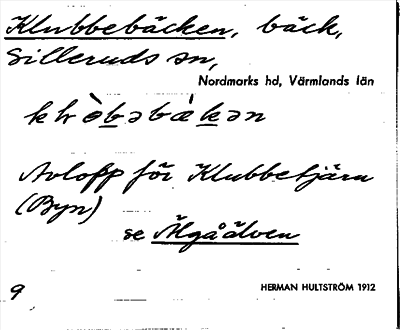 Klubbebäcken, bäck,
Silleruds sn,
Nordmarks hd, Värmlands län
Avlopp för Klubbetjärn
(Byn)
se Älgåälven
9
HERMAN HULTSTRÖM 1912